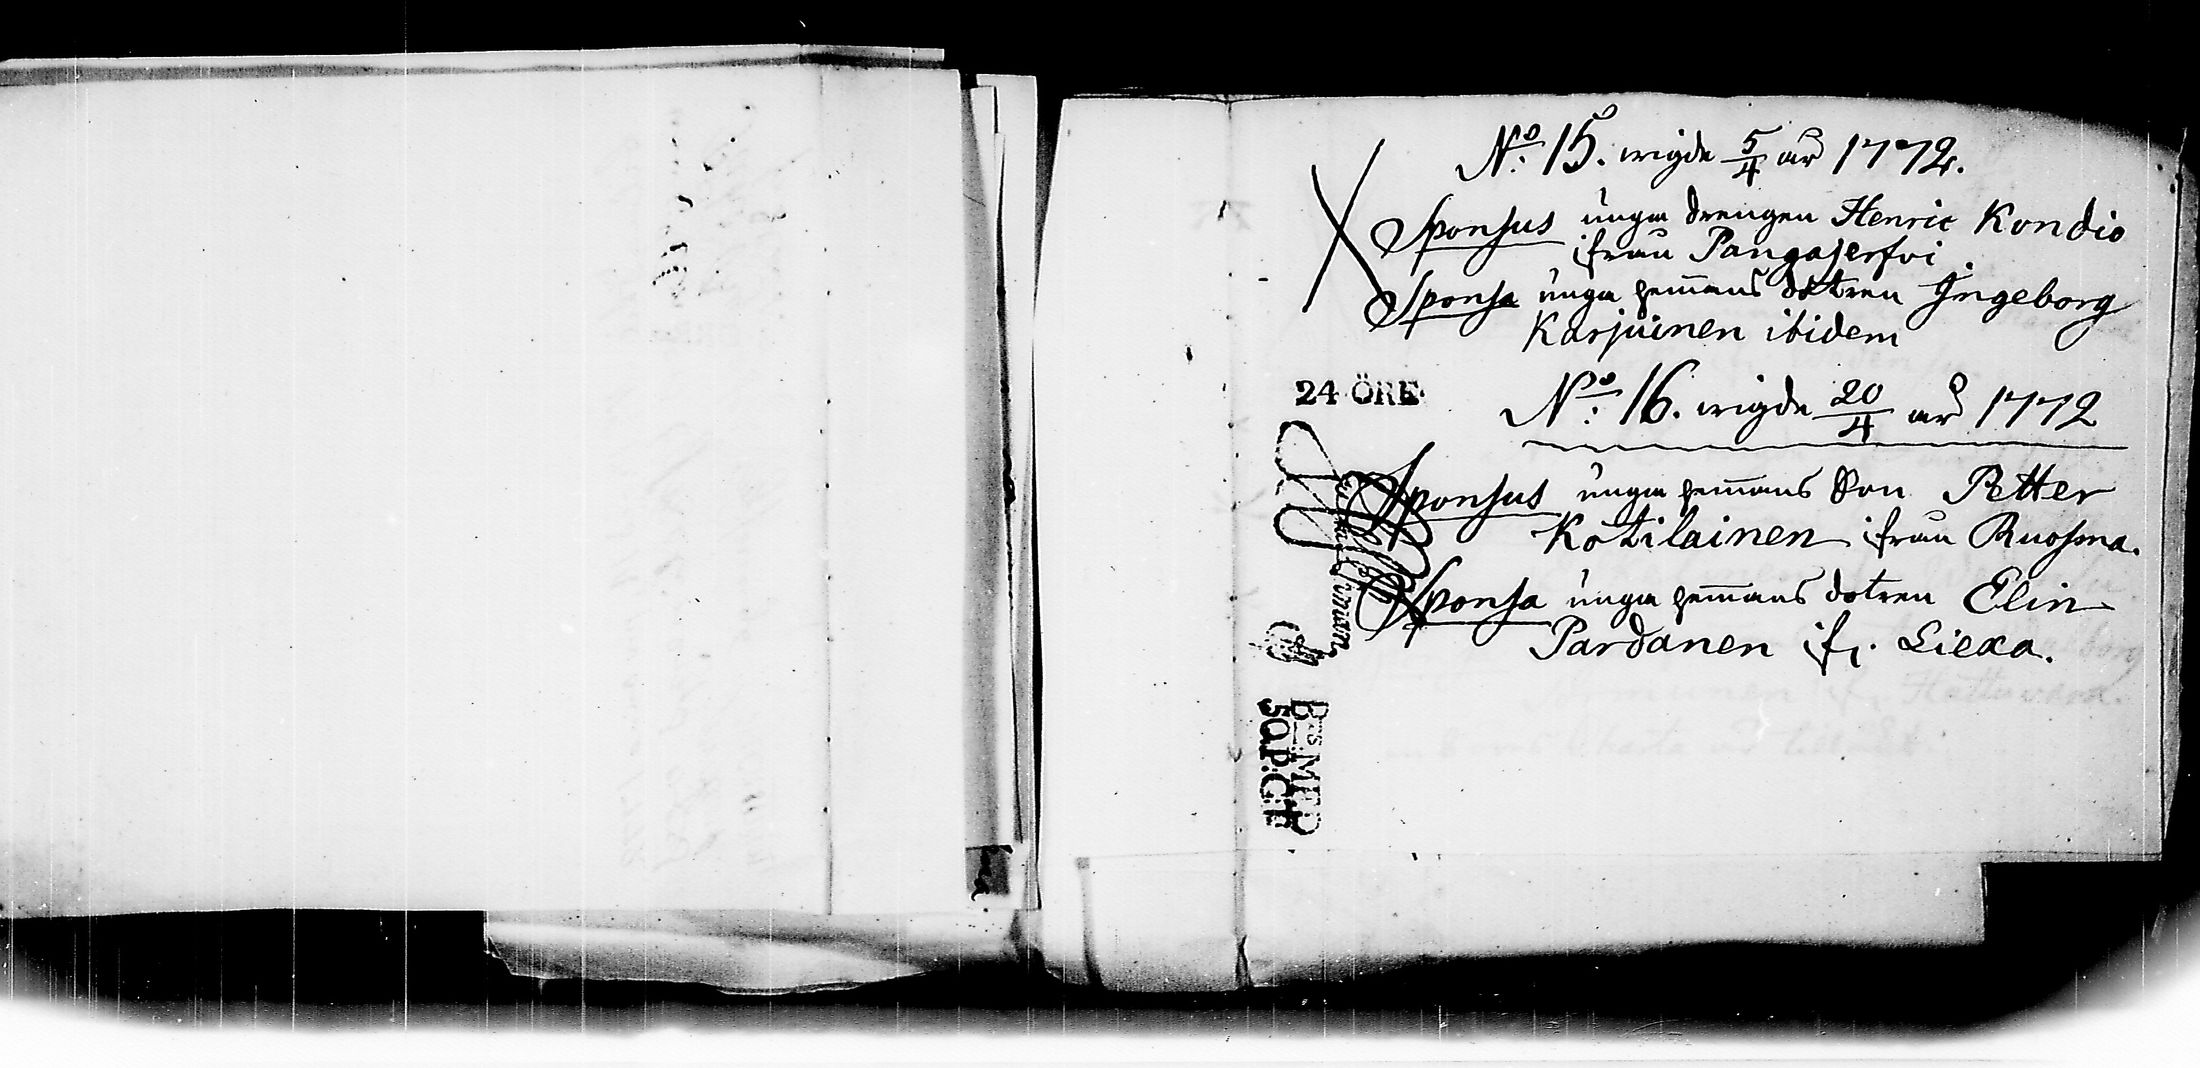 No: 15. wigde 5/4 år 1772.
Sponsus unga drengen Henric Kondio
ifrån Pangajerfvi.
Sponsa unga hem̄ans dotren Ingeborg
Karjuinen ibidem
24 ÖRE
No: 16. wigde 20/4 år 1772
Sponsus unga hem̄ans Son Petter
Kotilainen ifrån Ruosma.
Sponsa unga hem̄ans dotren Elin
Pardanen ifr. Liexa.